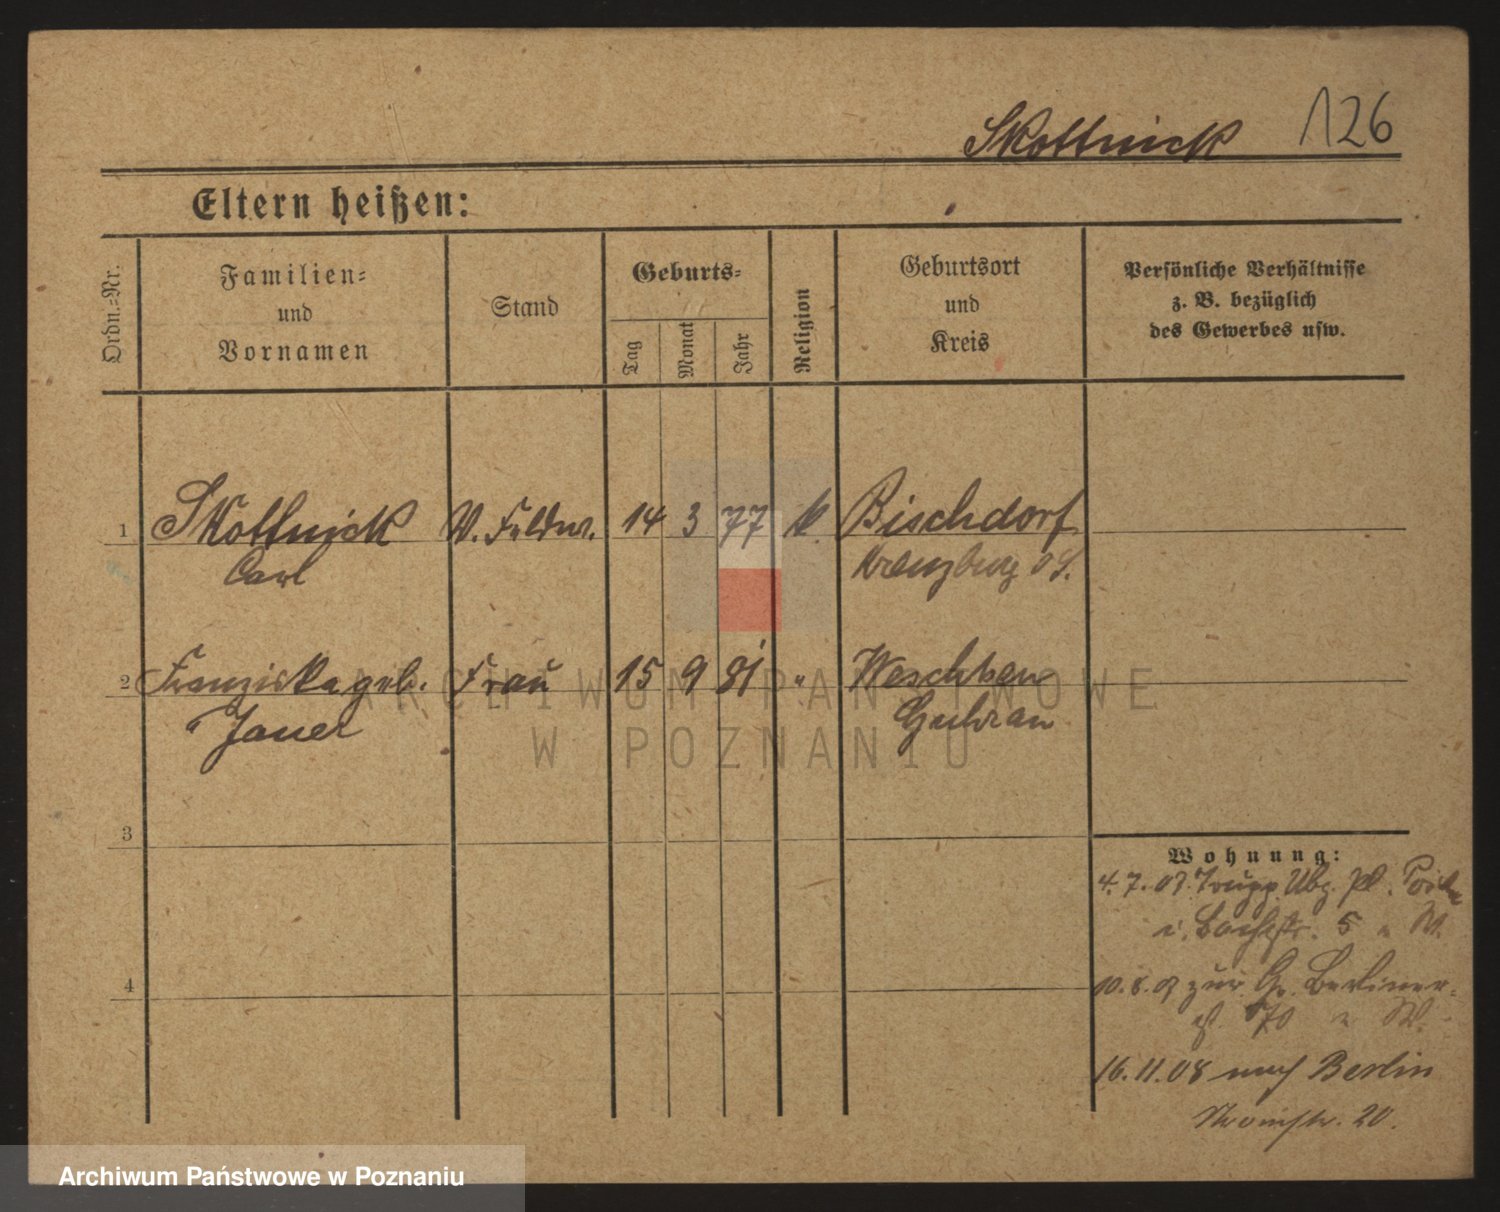 Skottnick 126
Eltern heißen:
Ordn.=Nr.
Familien=
und
Vornamen
Stand
Geburts=
Tag
Monat
Jahr
Religion
Geburtsort
und
Kreis
Persönliche Verhältnisse
z. B. bezüglich
des Gewerbes usw.
1 Skottnick V. Feldw. 14 3 77 k. Bischdorf
Carl Kreuzburg OS.
2 Franziska geb. Frau 15 9 81 " Weschkau
Jauer Guhrau
3
4
Wohnung:
4.7.07. Trupp. Übg. Pl.
i. 5 W.
10.8.08 zur Gr. Berliner-
70 W.
16.11.08 nach Berlin
20.
ARCHIWUM PAŃSTWOWE
W POZNANIU
Archiwum Państwowe w Poznaniu